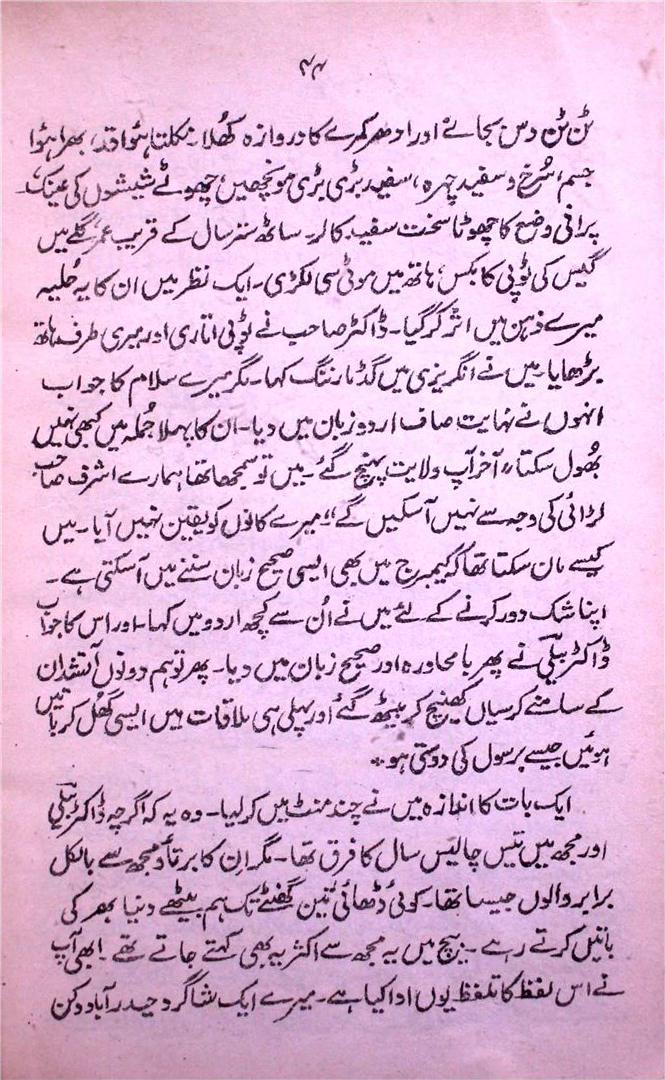 ۴۴
ٹن ٹن دس بجائے اور ادھر کمرے کا دروازہ کھُلا۔ نکلتا ہؤا قد، بھرا ہؤا
جسم، سُرخ و سفید چہرہ، سفید بڑی بڑی مونچھیں، چھوٹے شیشوں کی عینک۔
پرانی وضع کا چھوٹا سخت سفید کالر۔ ساٹھ ستر سال کے قریب عمر، گلے میں
گیس کی ٹوپی کا بکس، ہاتھ میں موٹی سی لکڑی۔ ایک نظر میں ان کا یہ حُلیہ
میرے ذہن میں اتر گیا۔ ڈاکٹر صاحب نے ٹوپی اتاری اور میری طرف ہاتھ
بڑھایا۔ میں نے انگریزی میں گڈ مارننگ کہا۔ مگر میرے سلام کا جواب
انہوں نے نہایت صاف اردو زبان میں دیا۔ ان کا پہلا جُملہ میں کبھی نہیں
بھُول سکتا "آخر آپ ولایت پہنچ گئے۔ میں تو سمجھا تھا ہمارے اشرف صاحب
لڑائی کی وجہ سے نہیں آ سکیں گے"۔ میرے کانوں کو یقین نہیں آیا۔ میں
کیسے مان سکتا تھا کہ کیمبرج میں بھی ایسی صحیح زبان سننے میں آ سکتی ہے۔
اپنا شک دور کرنے کے لئے میں نے اُن سے کچھ اردو میں کہا۔ اور اس کا جواب
ڈاکٹر بیلی نے پھر بامحاورہ اور صحیح زبان میں دیا۔ پھر تو ہم دونوں آتشدان
کے سامنے کرسیاں کھینچ کر بیٹھ گئے اور پہلی ہی ملاقات میں ایسی گھُل کر باتیں
ہوئیں جیسے برسوں کی دوستی ہو۔
ایک بات کا اندازہ میں نے چند منٹ میں کر لیا۔ وہ یہ کہ اگرچہ ڈاکٹر بیلی
اور مجھ میں تیس چالیس سال کا فرق تھا۔ مگر ان کا برتاؤ مجھ سے بالکل
برابر والوں جیسا تھا۔ کوئی ڈھائی تین گھنٹے تک ہم بیٹھے دنیا بھر کی
باتیں کرتے رہے۔ بیچ میں یہ مجھ سے اکثر یہ بھی کہتے جاتے تھے۔ ابھی آپ
نے اس لفظ کا تلفظ یوں ادا کیا ہے۔ میرے ایک شاگرد حیدر آباد دکن